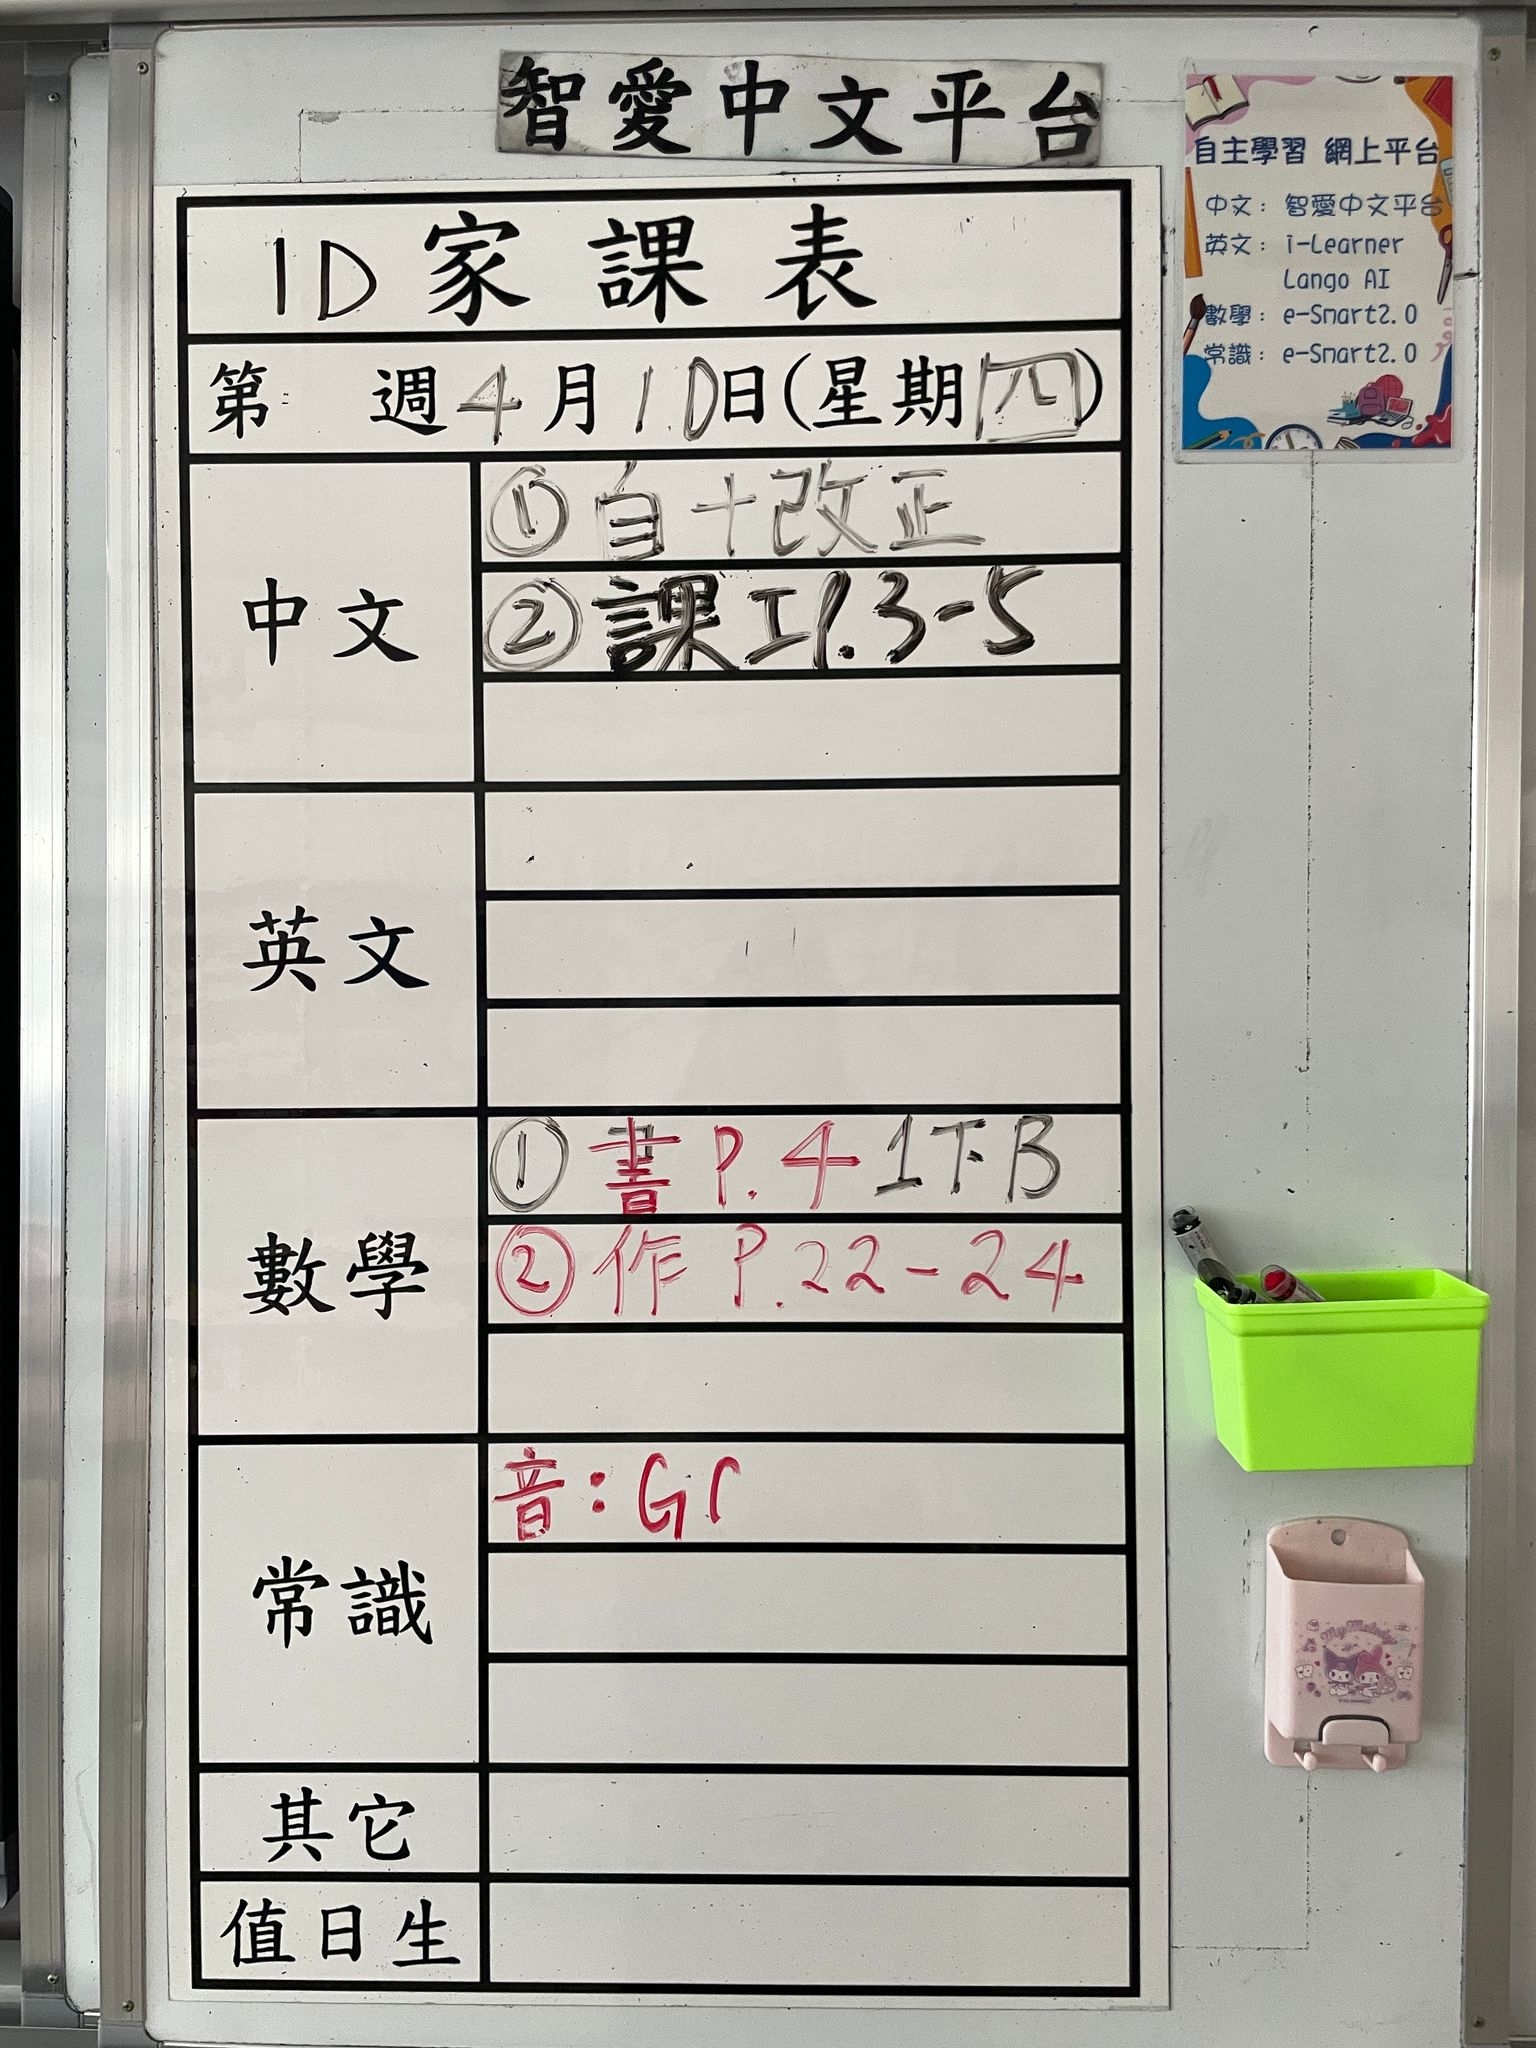 智愛中文平台
自主學習 網上平台
中文：智愛中文平台
英文：i-Learner
Lango AI
數學：e-Smart2.0
常識：e-Smart2.0
1D 家課表
第 週 4月10日(星期四)
中文
① 自十改正
② 課工P.3-5
英文
數學
① 書 P.4 1下B
② 作 P.22-24
常識
音：Gr
其它
值日生
My Melody